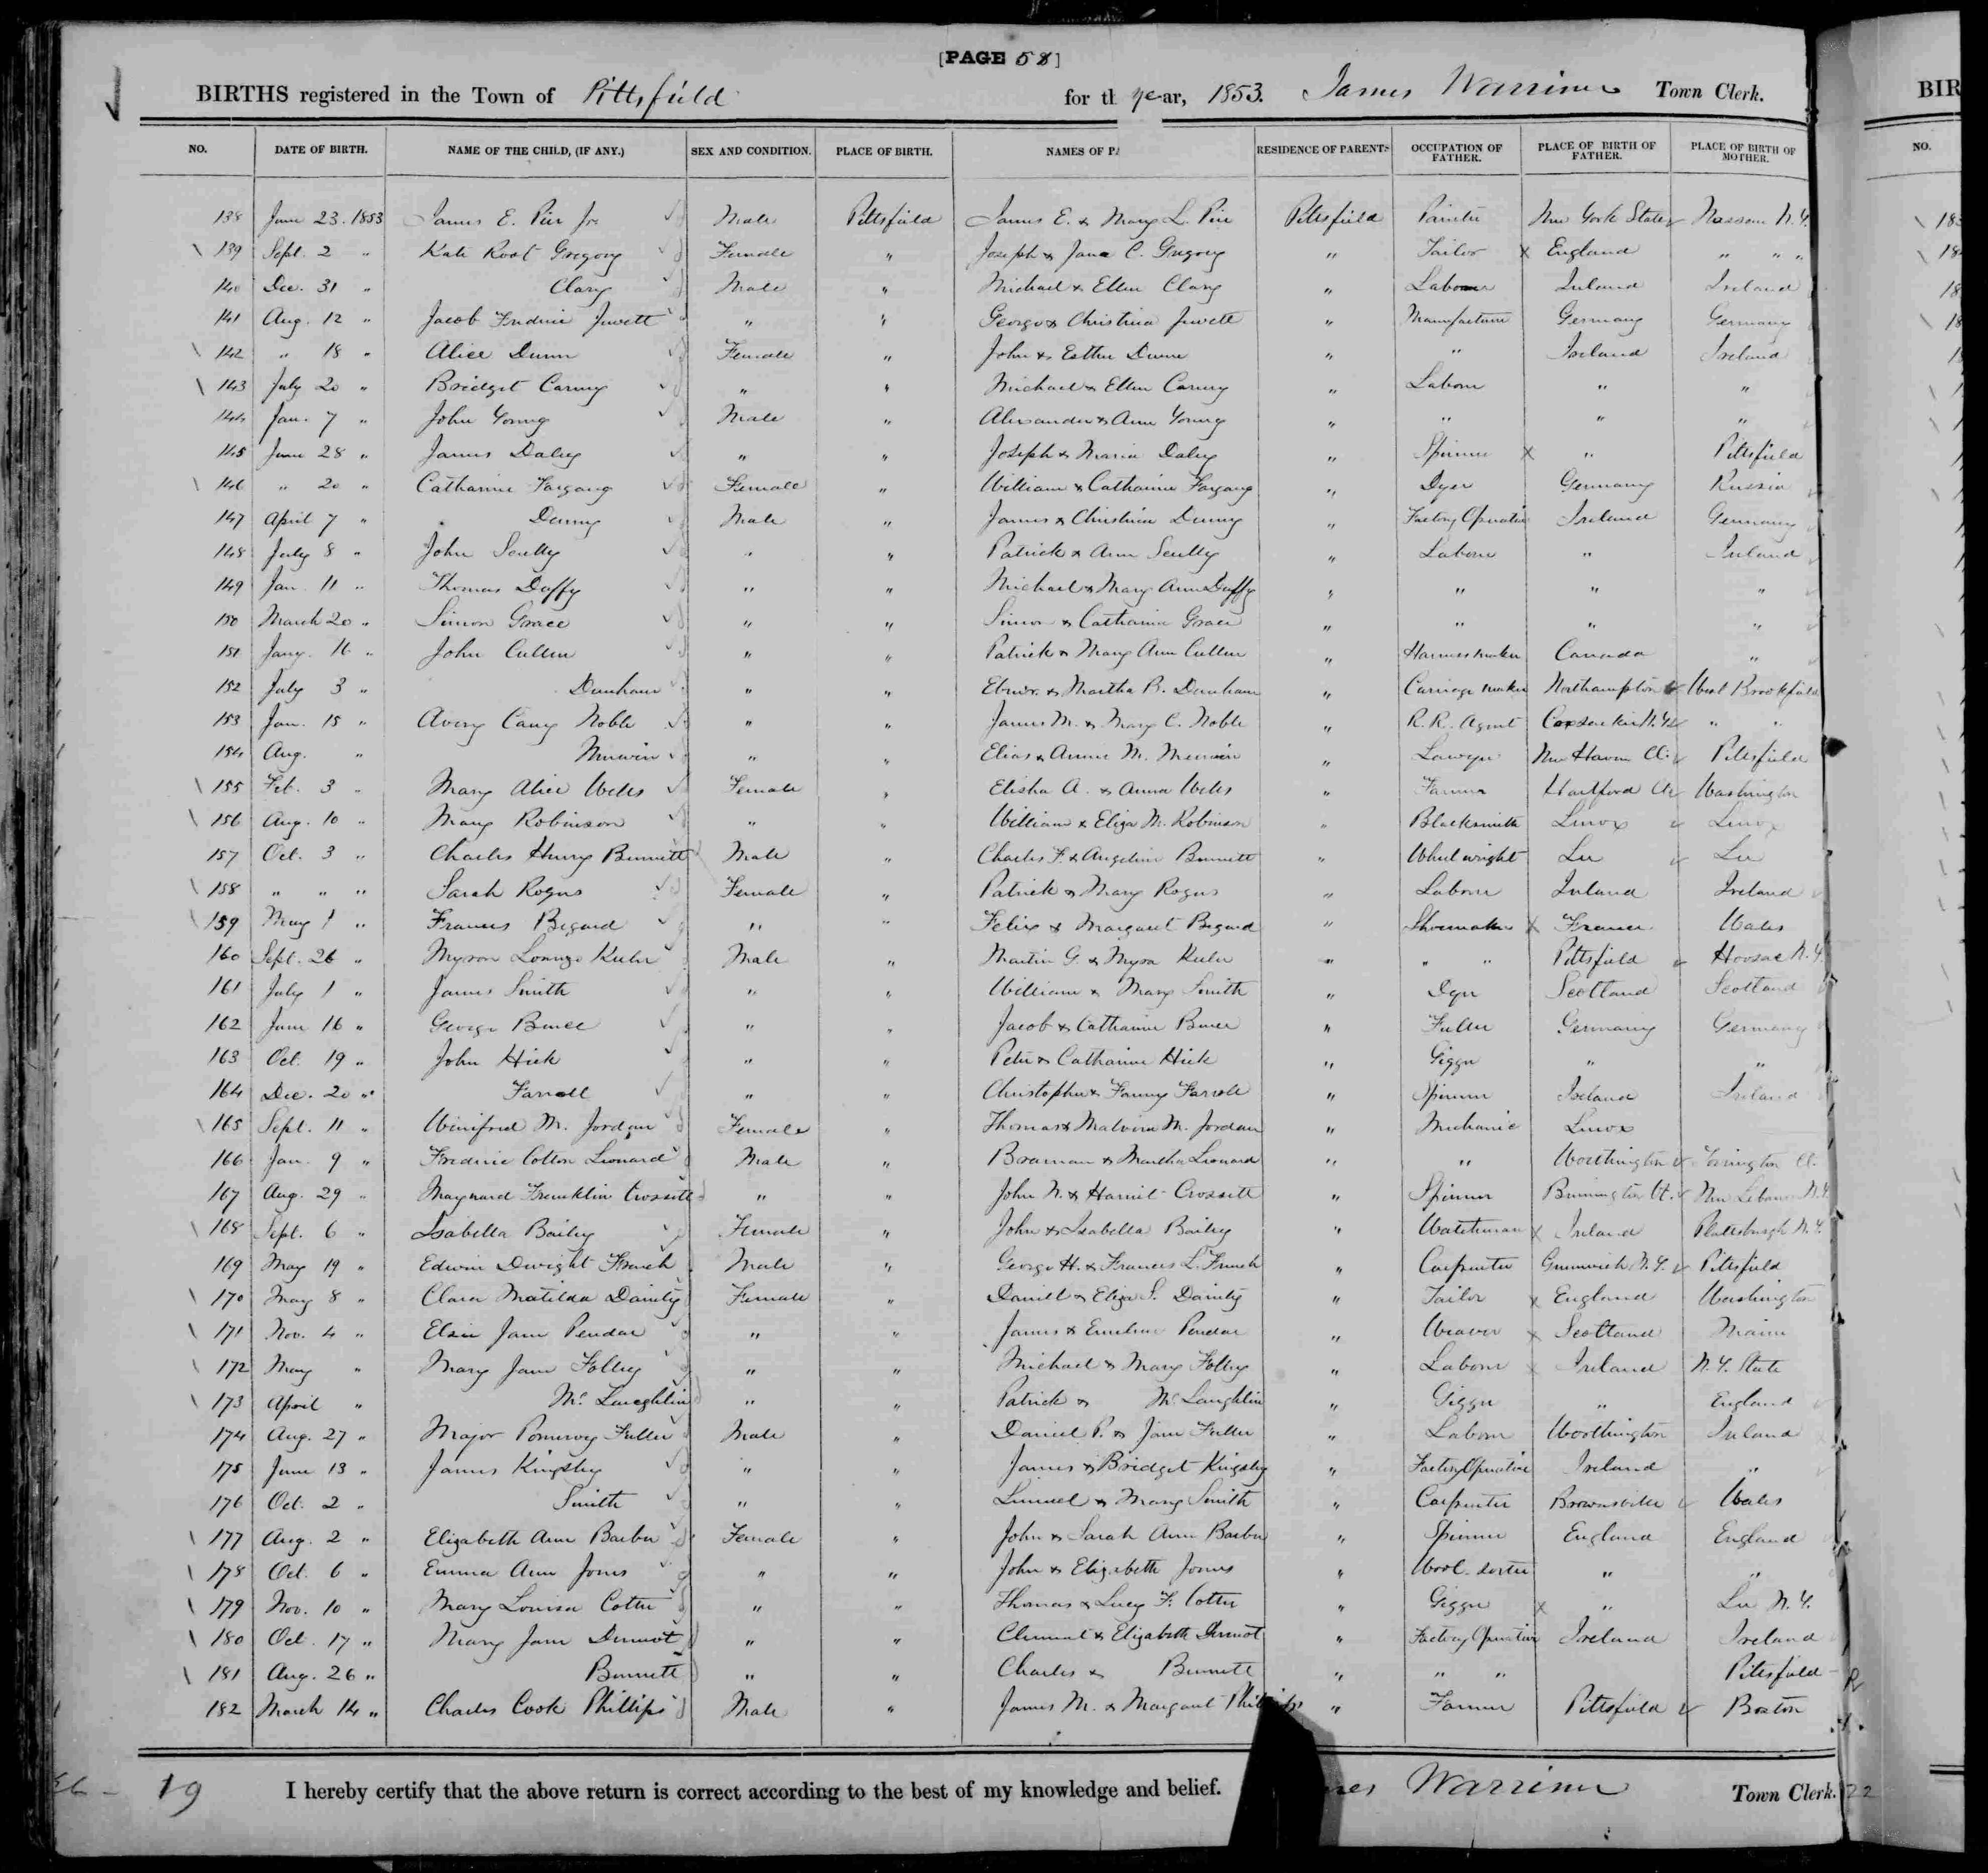 [PAGE 58]
BIRTHS registered in the Town of Pittsfield for th year, 1853. James Warriner Town Clerk.
NO. DATE OF BIRTH. NAME OF THE CHILD, (IF ANY.) SEX AND CONDITION. PLACE OF BIRTH. NAMES OF PA RESIDENCE OF PARENTS OCCUPATION OF FATHER. PLACE OF BIRTH OF FATHER. PLACE OF BIRTH OF MOTHER.
138 June 23. 1853 James E. Pier Jr. Male Pittsfield James E. & Mary L. Pier Pittsfield Painter New York State Nassau N.Y.
139 Sept. 2 " Kate Root Gregory Female " Joseph & Jane C. Gregory " Tailor X England " " "
140 Dec. 31 " Clary Male " Michael & Ellen Clary " Laborer Ireland Ireland
141 Aug. 12 " Jacob Frederic Jewett " " George & Christina Jewett " Manufacturer Germany Germany
142 " 18 " Alice Dunn Female " John & Esther Dunn " " Ireland Ireland
143 July 20 " Bridget Carney " " Michael & Ellen Carney " Laborer " "
144 Jan. 7 " John Young Male " Alexander & Ann Young " " " "
145 June 28 " James Daley " " Joseph & Maria Daley " Spinner X " Pittsfield
146 " 20 " Catharine Fargang Female " William & Catharine Fargang " Dyer Germany Russia
147 April 7 " Denny Male " James & Christina Denny " Factory Operative Ireland Germany
148 July 8 " John Scully " " Patrick & Ann Scully " Laborer " Ireland
149 Jan. 11 " Thomas Duffy " " Michael & Mary Ann Duffy " " " "
150 March 20 " Simon Grace " " Simon & Catharine Grace " " " "
151 Jany. 16 " John Cullen " " Patrick & Mary Ann Cullen " Harness maker Canada "
152 July 3 " Dunham " " Ebnr. & Martha B. Dunham " Carriage maker Northampton West Brookfield
153 Jan. 15 " Avery Cary Noble " " James M. & Mary C. Noble " R.R. Agent Coxsackie N.Y. " "
154 Aug. " Merwin " " Elias & Annie M. Merwin " Lawyer New Haven Ct. Pittsfield
155 Feb. 3 " Mary Alice Wells Female " Elisha A. & Anna Wells " Farmer Hartford Ct Washington
156 Aug. 10 " Mary Robinson " " William & Eliza M. Robinson " Blacksmith Lenox Lenox
157 Oct. 3 " Charles Henry Bennett Male " Charles F. & Angeline Bennett " Wheelwright Lee Lee
158 " " " Sarah Rogers Female " Patrick & Mary Rogers " Laborer Ireland Ireland
159 May 1 " Frances Begard " " Felix & Margaret Begard " Shoemaker X France Wales
160 Sept. 26 " Myron Lorenzo Keeler Male " Martin G. & Myra Keeler " " " Pittsfield Hoosac N.Y.
161 July 1 " James Smith " " William & Mary Smith " Dyer Scotland Scotland
162 June 16 " George Bence " " Jacob & Catharine Bence " Fuller Germany Germany
163 Oct. 19 " John Hick " " Peter & Catharine Hick " Gigger " "
164 Dec. 20 " Farrell " " Christopher & Fanny Farrell " Spinner Ireland Ireland
165 Sept. 11 " Winifred M. Jordan Female " Thomas & Malvina M. Jordan " Mechanic Lenox
166 Jan. 9 " Frederic Cotton Leonard Male " Braman & Martha Leonard " " Worthington Torrington Ct.
167 Aug. 29 " Maynard Franklin Crossett " " John N. & Harriet Crossett " Spinner Bennington Vt. New Lebanon N.Y.
168 Sept. 6 " Isabella Bailey Female " John & Isabella Bailey " Watchman X Ireland Plattsburgh N.Y.
169 May 19 " Edwin Dwight French Male " George H. & Frances L. French " Carpenter Greenwich N.Y. Pittsfield
170 May 8 " Clara Matilda Dainty Female " Daniel & Eliza S. Dainty " Tailor X England Washington
171 Nov. 4 " Elsie Jane Pendar " " James & Emeline Pendar " Weaver X Scotland Maine
172 May " Mary Jane Folley " " Michael & Mary Folley " Laborer X Ireland N.Y. State
173 April " Mc. Laughlin " " Patrick & Mc. Laughlin " Gigger " England
174 Aug. 27 " Major Pomeroy Fuller Male " Daniel P. & Jane Fuller " Laborer Worthington Ireland
175 June 13 " James Kingsley " " James & Bridget Kingsley " Factory Operative Ireland "
176 Oct. 2 " Smith " " Lemuel & Mary Smith " Carpenter Brownsville Wales
177 Aug. 2 " Elizabeth Ann Barber Female " John & Sarah Ann Barber " Spinner England England
178 Oct. 6 " Emma Ann Jones " " John & Elizabeth Jones " Wool sorter " "
179 Nov. 10 " Mary Louisa Cotter " " Thomas & Lucy F. Cotter " Gigger X " Lee N.Y.
180 Oct. 17 " Mary Jane Dermot " " Clement & Elizabeth Dermot " Factory Operative Ireland Ireland
181 Aug. 26 " Bennett " " Charles & Bennett " " " Pittsfield
182 March 14 " Charles Cook Phillips Male " James M. & Margaret Phillips " Farmer Pittsfield Boston
19 I hereby certify that the above return is correct according to the best of my knowledge and belief. mes Warriner Town Clerk. 22
BIR
NO.